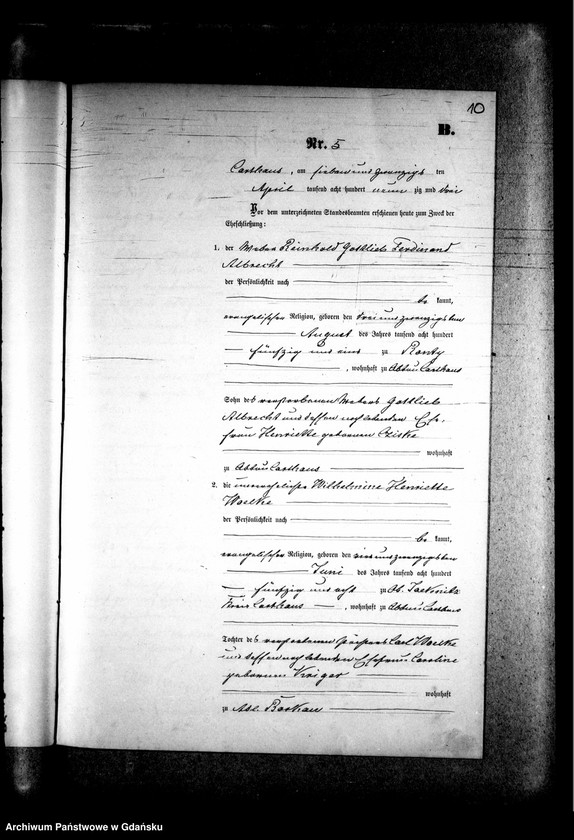 10
B.
Nr. 5
Carthaus, am sieben und zwanzigsten
April tausend acht hundert neun zig und
Vor dem unterzeichneten Standesbeamten erschienen heute zum Zweck der
Eheschließung:
1. der Maurer Reinhold Gottlieb Ferdinand
Albrecht
der Persönlichkeit nach
be kannt,
evangelischer Religion, geboren den drei und zwanzigsten
August des Jahres tausend acht hundert
fünfzig und eins zu
, wohnhaft zu Abbau Carthaus
Sohn des verstorbenen Gottlieb
Albrecht und dessen noch lebenden Ehe-
frau Henriette geborenen
wohnhaft
zu Abbau Carthaus
2. die unverehelichte Wilhelmine Henriette
Woelke
der Persönlichkeit nach
be kannt,
evangelischer Religion, geboren den ein und zwanzigsten
Juni des Jahres tausend acht hundert
fünfzig und acht zu
Kreis Carthaus, wohnhaft zu Abbau Carthaus
Tochter des verstorbenen Carl Woelke
und dessen noch lebenden Ehefrau Caroline
geborenen Krüger
wohnhaft
zu Adl.
Archiwum Państwowe w Gdańsku